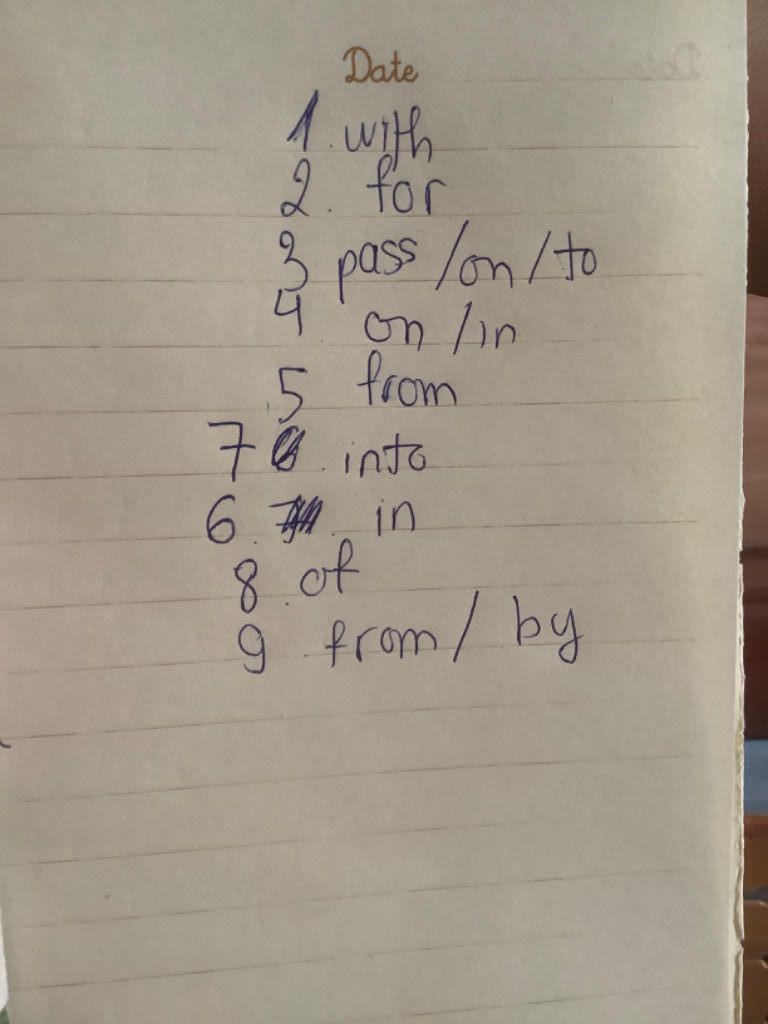 Date
1. with
2. for
3 pass /on/to
4 on /in
5 from
7 . into
6 . in
8 . of
9 from / by